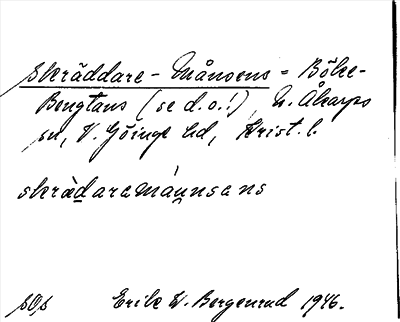 Skräddare-Månsens = Böke-
Bengtans (se d.o.!), N. Åkarps
sn, V. Göinge hd, Krist. l.
skrädaramáunsans
sOs Erik W. Bergenrud 1946.